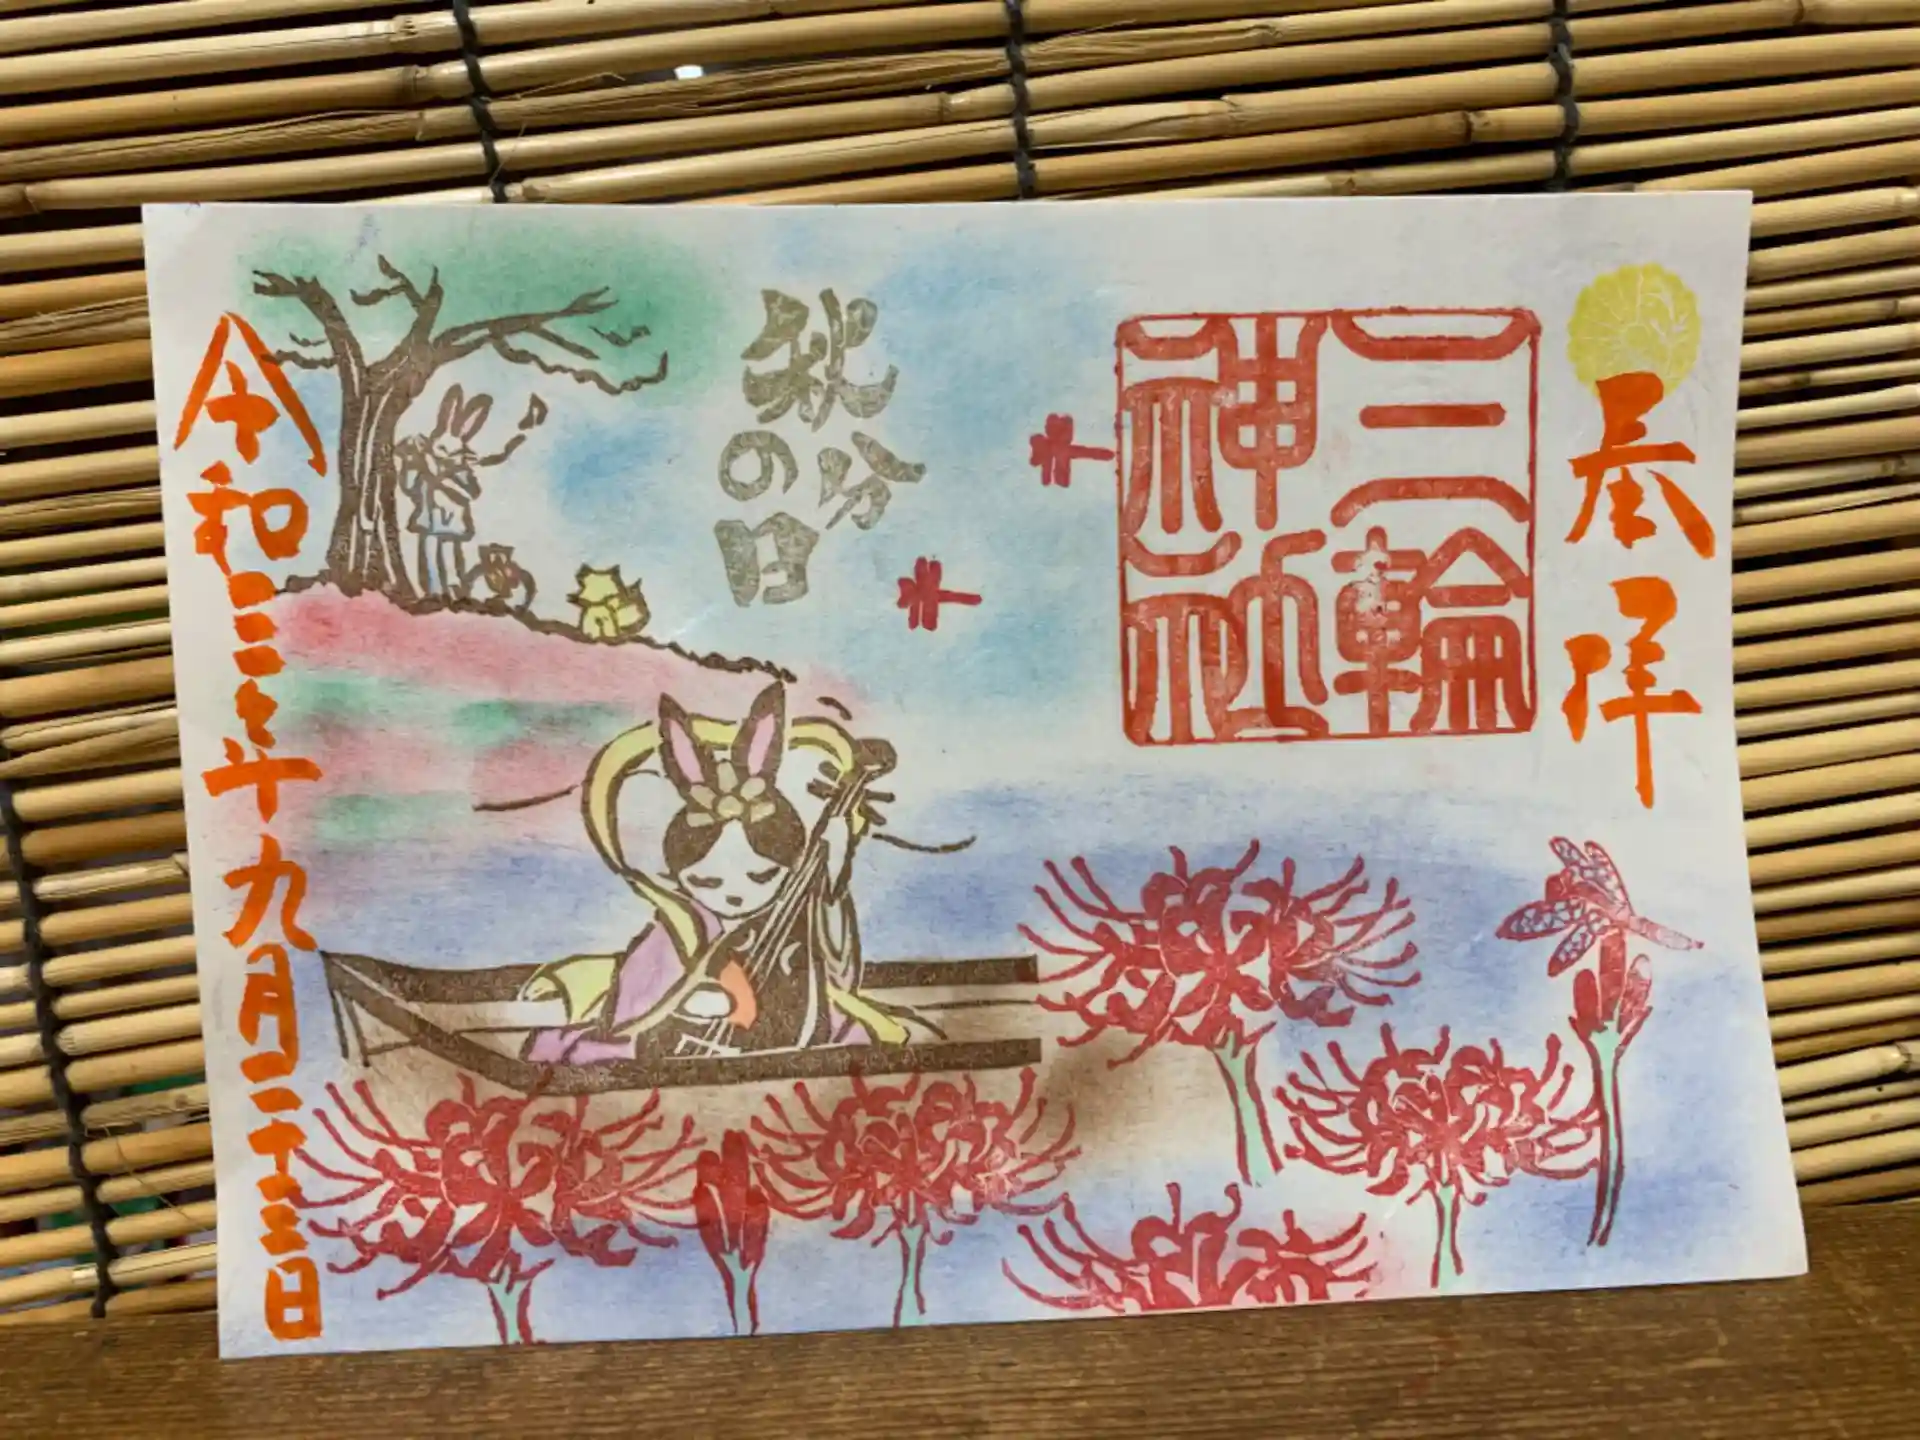 奉拝
三輪
神社
秋分の日
令和三年九月二十三日